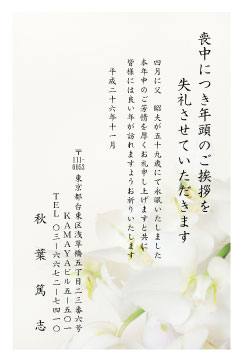 喪中につき年頭のご挨拶を
失礼させていただきます
四月に父　昭夫が五十九歳にて永眠いたしました
本年中のご芳情を厚くお礼申し上げますと共に
皆様には良い年が訪れますようお祈りいたします
平成二十六年十一月
〒111-0053
東京都台東区浅草橋五丁目二三番六号
KAMAYAビル五－五〇一
TEL 〇三－六六七二－七四一〇
秋葉　篤志